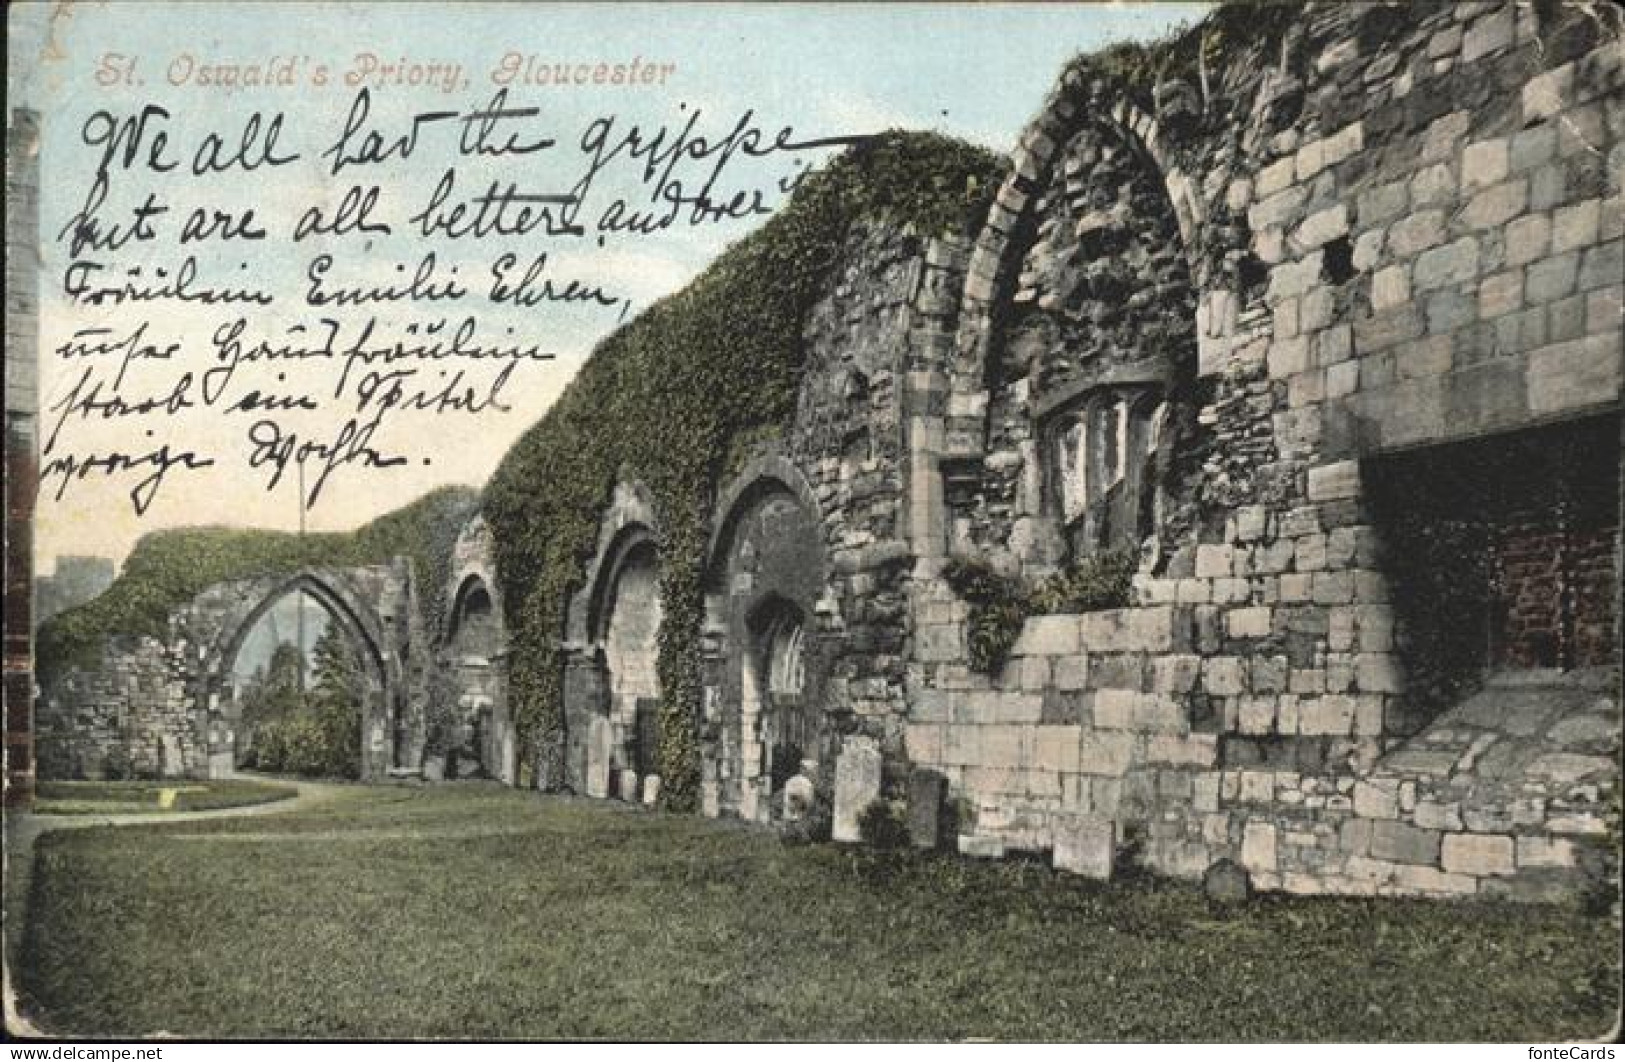 St. Oswald's Priory, Gloucester
We all had the grippe
but are all better and over it
Fräulein Emilie Ehren,
unser Hausfräulein
starb ein Spital
vorige Woche.
fonteCards
www.delcampe.net The Collector